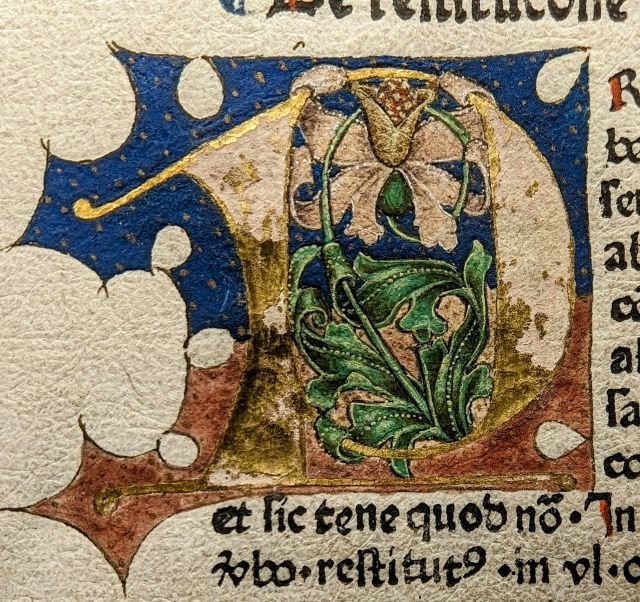 De restitucõne
R
bo
ser
al
cõ
al
sa
co
et sic tene quod nõ · In
v̾bo · restitutꝰ · in vl · c